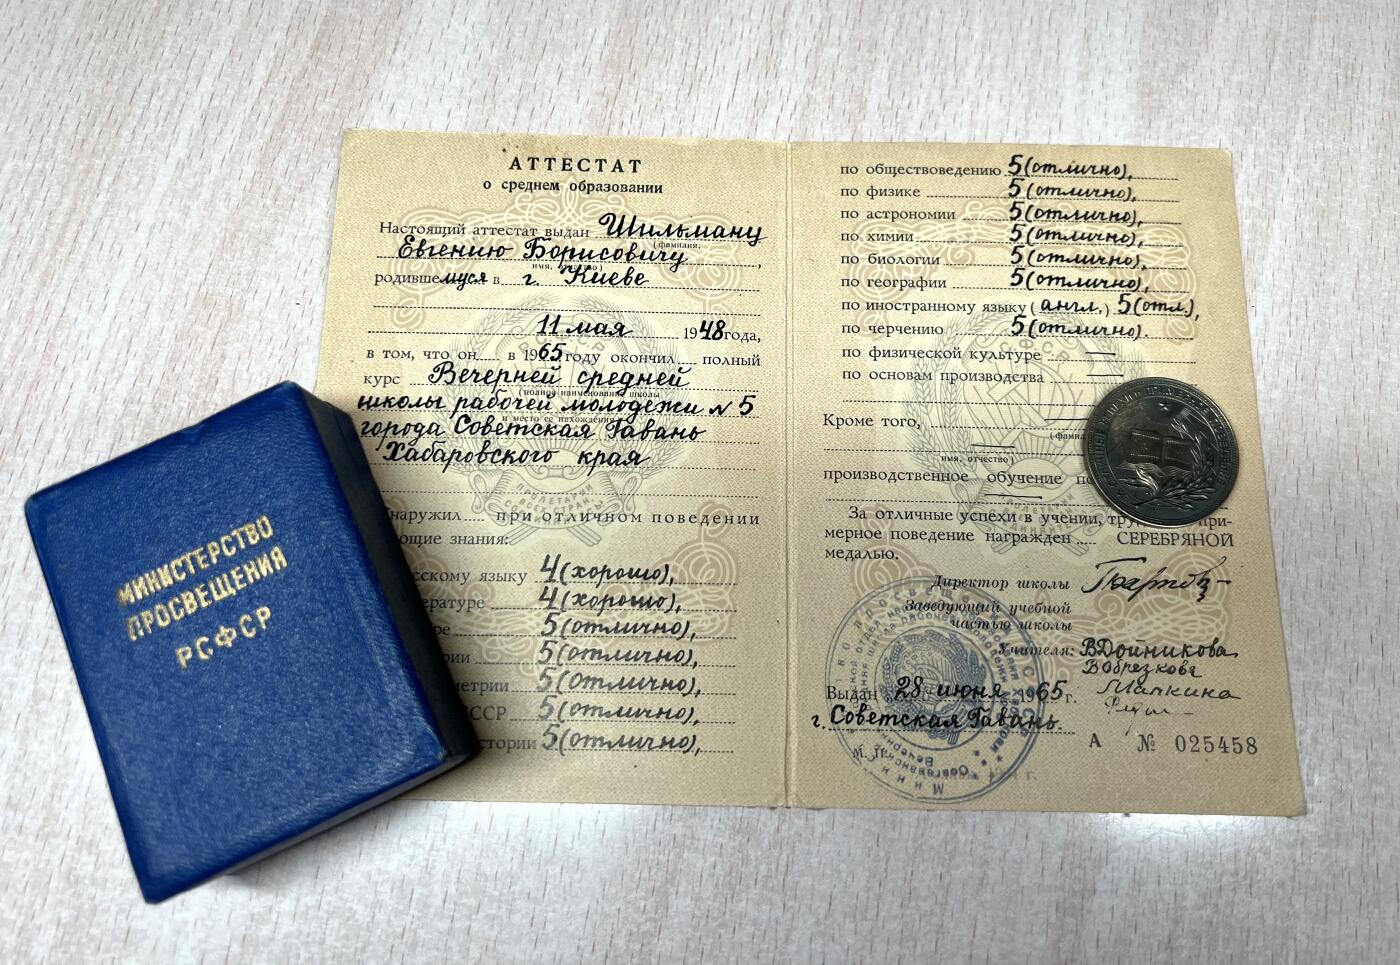 МИНИСТЕРСТВО
ПРОСВЕЩЕНИЯ
РСФСР
АТТЕСТАТ
о среднем образовании
Настоящий аттестат выдан Шильману
(фамилия,
Евгению Борисовичу
имя, отчество)
родившемуся в г. Киеве
11 мая 1948 года,
в том, что он в 1965 году окончил полный
курс Вечерней средней
(полное наименование школы
школы рабочей молодежи № 5
и место ее нахождения)
города Советская Гавань
Хабаровского края
наружил при отличном поведении
ющие знания:
сскому языку 4 (хорошо),
ературе 4 (хорошо),
ре 5 (отлично),
рии 5 (отлично),
метрии 5 (отлично),
СССР 5 (отлично),
стории 5 (отлично),
по обществоведению 5 (отлично),
по физике 5 (отлично),
по астрономии 5 (отлично),
по химии 5 (отлично),
по биологии 5 (отлично),
по географии 5 (отлично),
по иностранному языку (англ.) 5 (отл),
по черчению 5 (отлично).
по физической культуре —
по основам производства —
Кроме того,
(фамил
имя, отчество)
производственное обучение по
За отличные успехи в учении, тру при-
мерное поведение награжден СЕРЕБРЯНОЙ
медалью.
Директор школы
Заведующий учебной
частью школы
Учителя: ВДойникова
В Обрезкова
Выдан „28„ июня 1965 г.
г. Советская Гавань.
М. П.
А № 025458